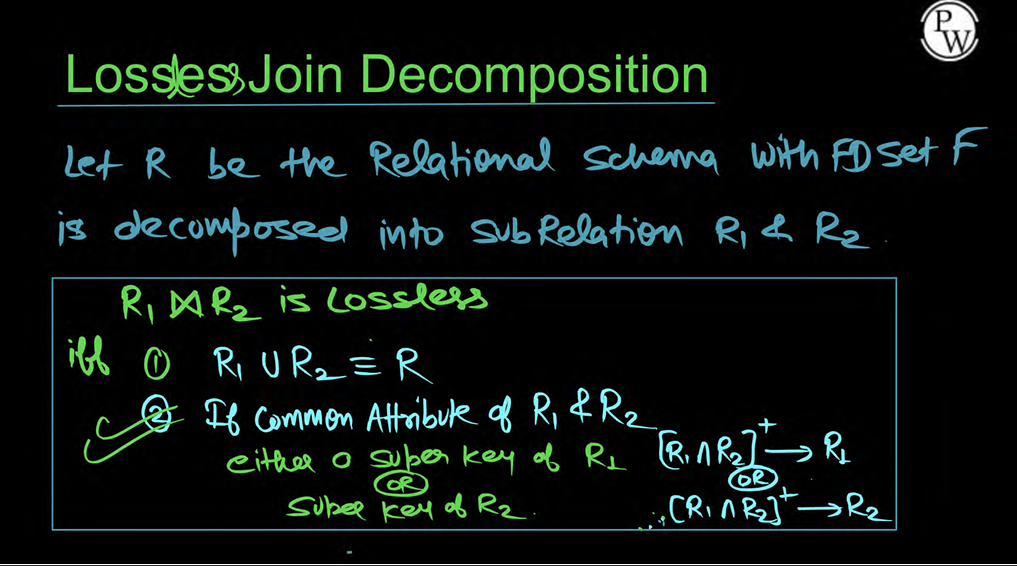 PW
Lossless Join Decomposition
Let R be the Relational Schema with FD set F
is decomposed into subRelation R1 & R2.
R1 ⋈ R2 is Lossless
iff ① R1 ∪ R2 ≡ R
② If Common Attribute of R1 & R2
either a super key of R1 [R1 ∩ R2]+ → R1
OR OR
Super key of R2. [R1 ∩ R2]+ → R2